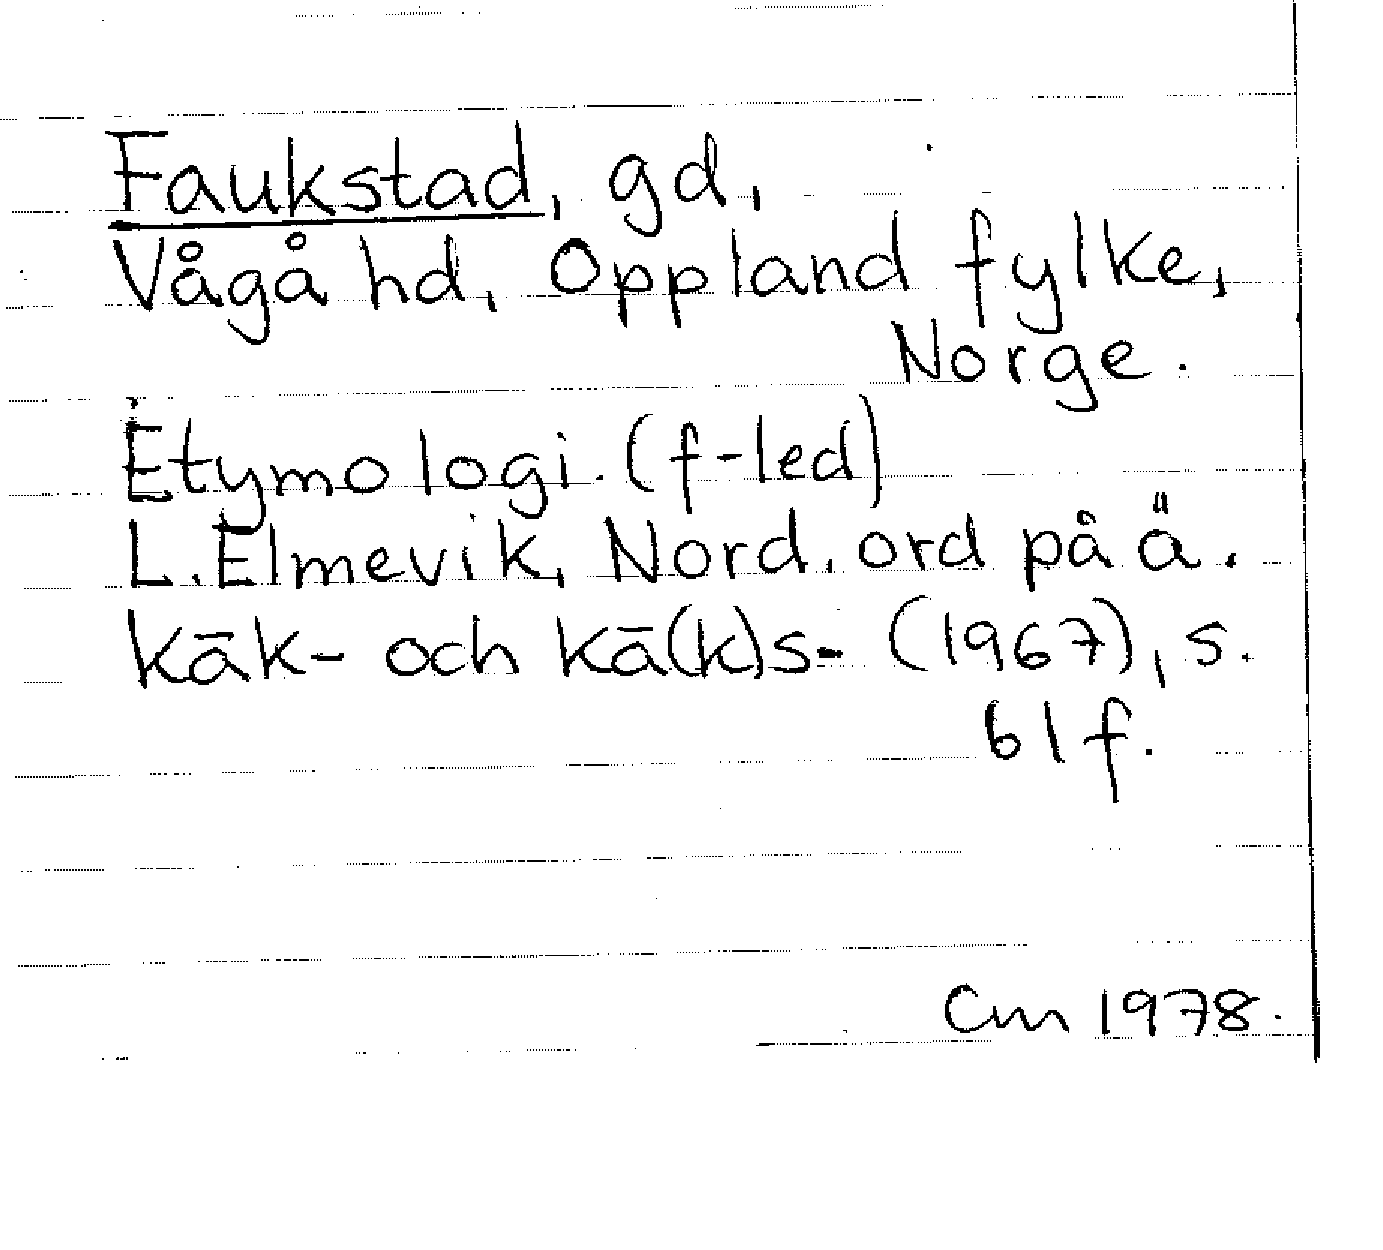 Faukstad, gd,
Vågå hd, Oppland fylke,
Norge.
Etymologi. (f-led)
L. Elmevik, Nord. ord på ä.
kāk- och kā(k)s- (1967), s.
61 f.
Cm 1978.